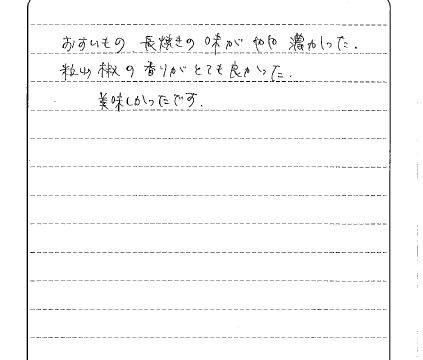 おすいもの、長焼きの味がやや濃かった。
粒山椒の香りがとても良かった。
美味しかったです。